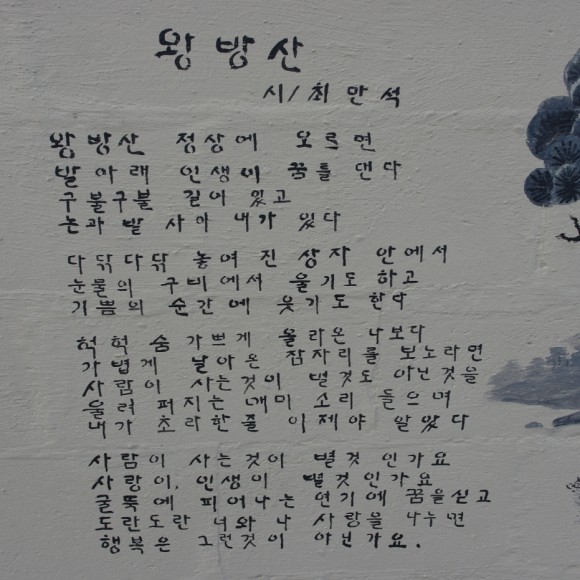 왕방산
시/최만석
왕방산 정상에 오르면
발아래 인생이 꿈틀 댄다
구불구불 길이 있고
논과 밭 사이 내가 있다
다닦다닦 놓여 진 상자 안에서
눈물의 구비에서 울기도 하고
기쁨의 순간에 웃기도 한다
헉헉 숨 가쁘게 올라온 나보다
가볍게 날아온 잠자리를 보노라면
사람이 사는것이 별것도 아닌것을
울려 퍼지는 개미 소리 들으며
내가 초라한줄 이제야 알았다
사람이 사는것이 별것 인가요
사랑이, 인생이 별것인가요
굴뚝에 피어나는 연기에 꿈을싣고
도란도란 너와 나 사랑을 나누면
행복은 그런것이 아닌가요.